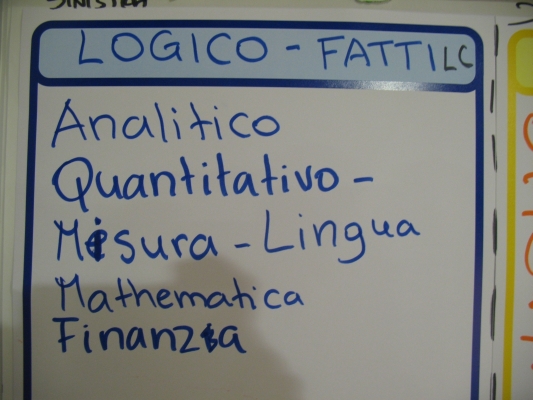 SINISTRA
LOGICO - FATTI LC
Analitico
Quantitativo -
Misura - Lingua
Mathematica
Finanza